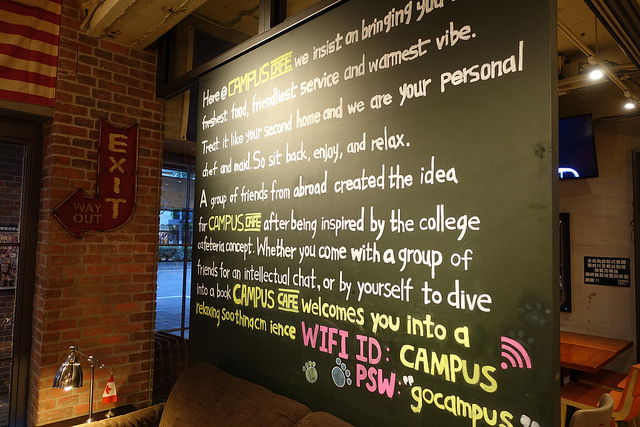 Here @ CAMPUS CAFE we insist on bringing you
freshest food, friendliest service and warmest vibe.
Treat it like your second home and we are your personal
chef and maid. So sit back, enjoy, and relax.
A group of friends from abroad created the idea
for CAMPUS CAFE after being inspired by the college
cafeteria concept. Whether you come with a group of
friends for an intellectual chat, or by yourself to dive
into a book CAMPUS CAFE welcomes you into a
relaxing soothing cm ience WIFI ID: CAMPUS
PSW: "gocampus"
EXIT
WAY
OUT